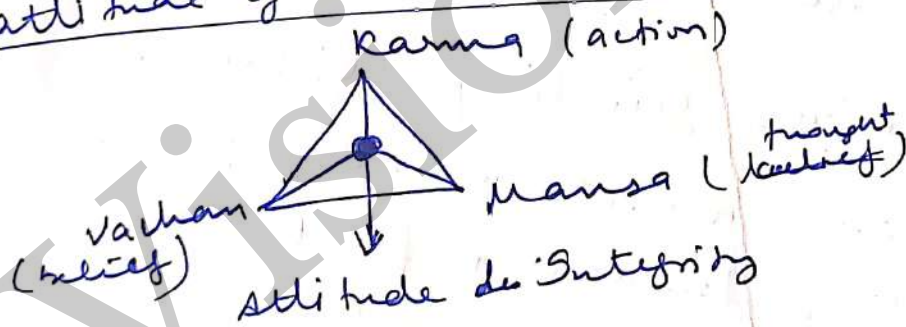 attitude
Karma (action)
thought
Mansa (belief)
Vachan
(belief)
Attitude de Integrity
Vision